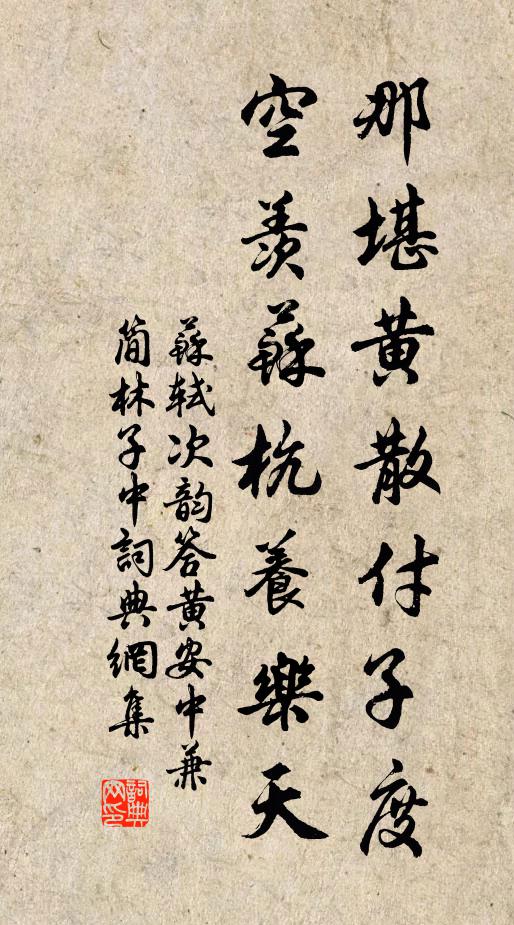 那堪黃散付子度
空羨蘇杭養樂天
蘇軾次韵答黃安中兼
簡林子中詞典網集
詞典網印